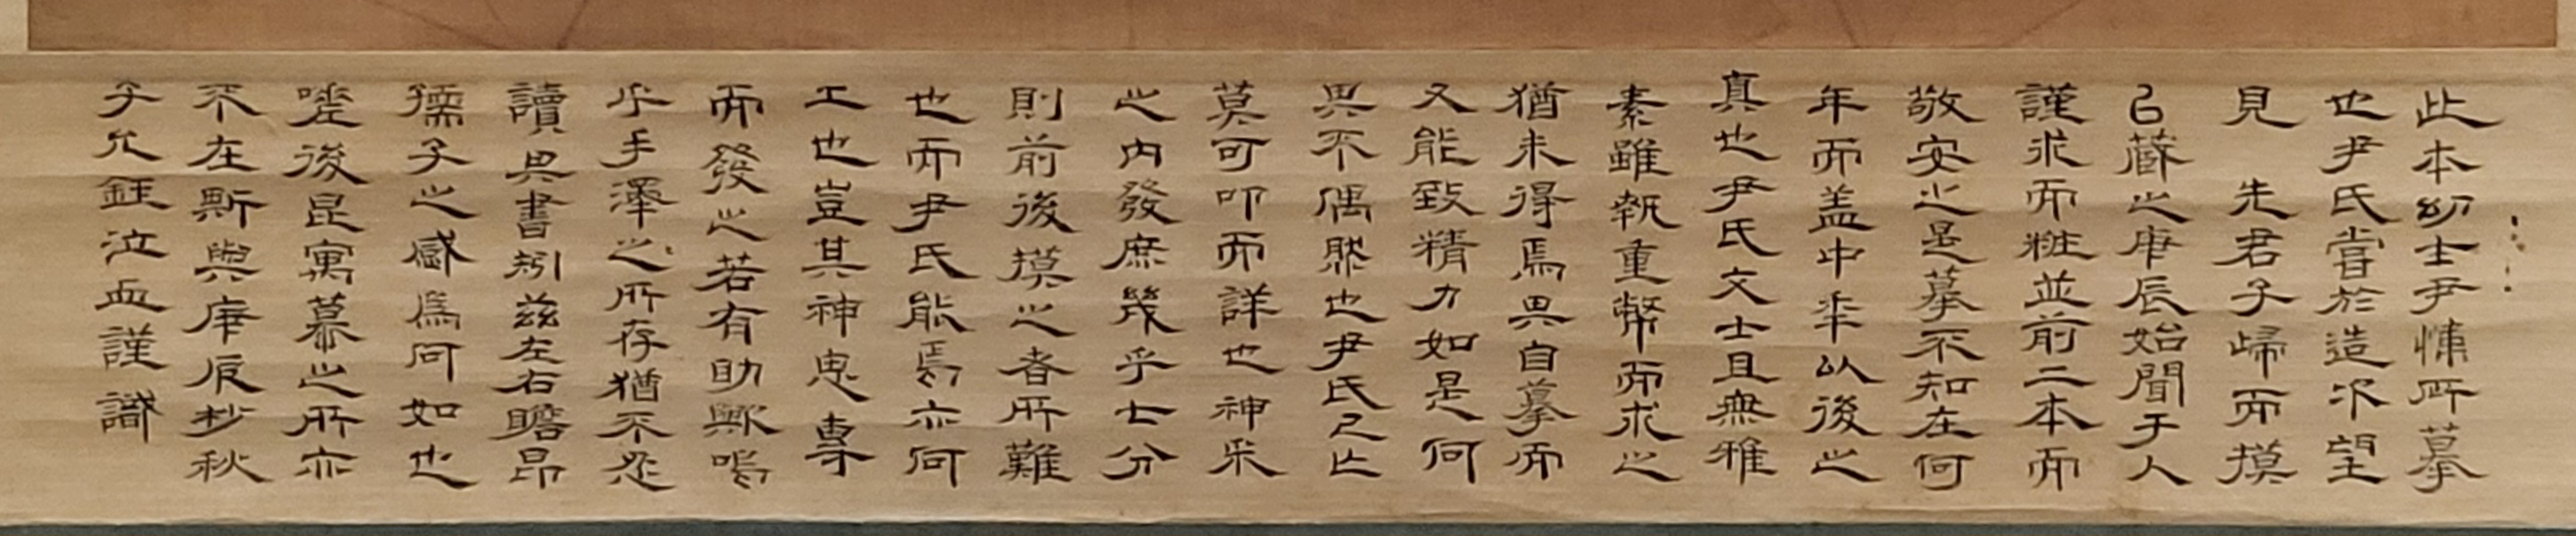 此本幼士尹愹所摹
也尹氏嘗於造次望
見 先君子歸而摸
已藏之庚辰始聞于人
謹求而粧並前二本而
敬安之是摹不知在何
年而盖中年以後之
真也尹氏文士且無雅
素雖執重幣而求之
猶未得焉畀自摹而
又能致精力如是何
異不偶然也尹氏已亡
莫可叩而詳也神采
之內發庶幾乎七分
則前後摸之者所難
也而尹氏能焉亦何
工也豈其神鬼專
而發之若有助歟嗚
乎手澤之所存猶不忍
讀其書矧玆左右瞻昻
孺子之感爲何如也
嗟後昆寓慕之所亦
不在斯與庚辰杪秋
子允鉦泣血謹識